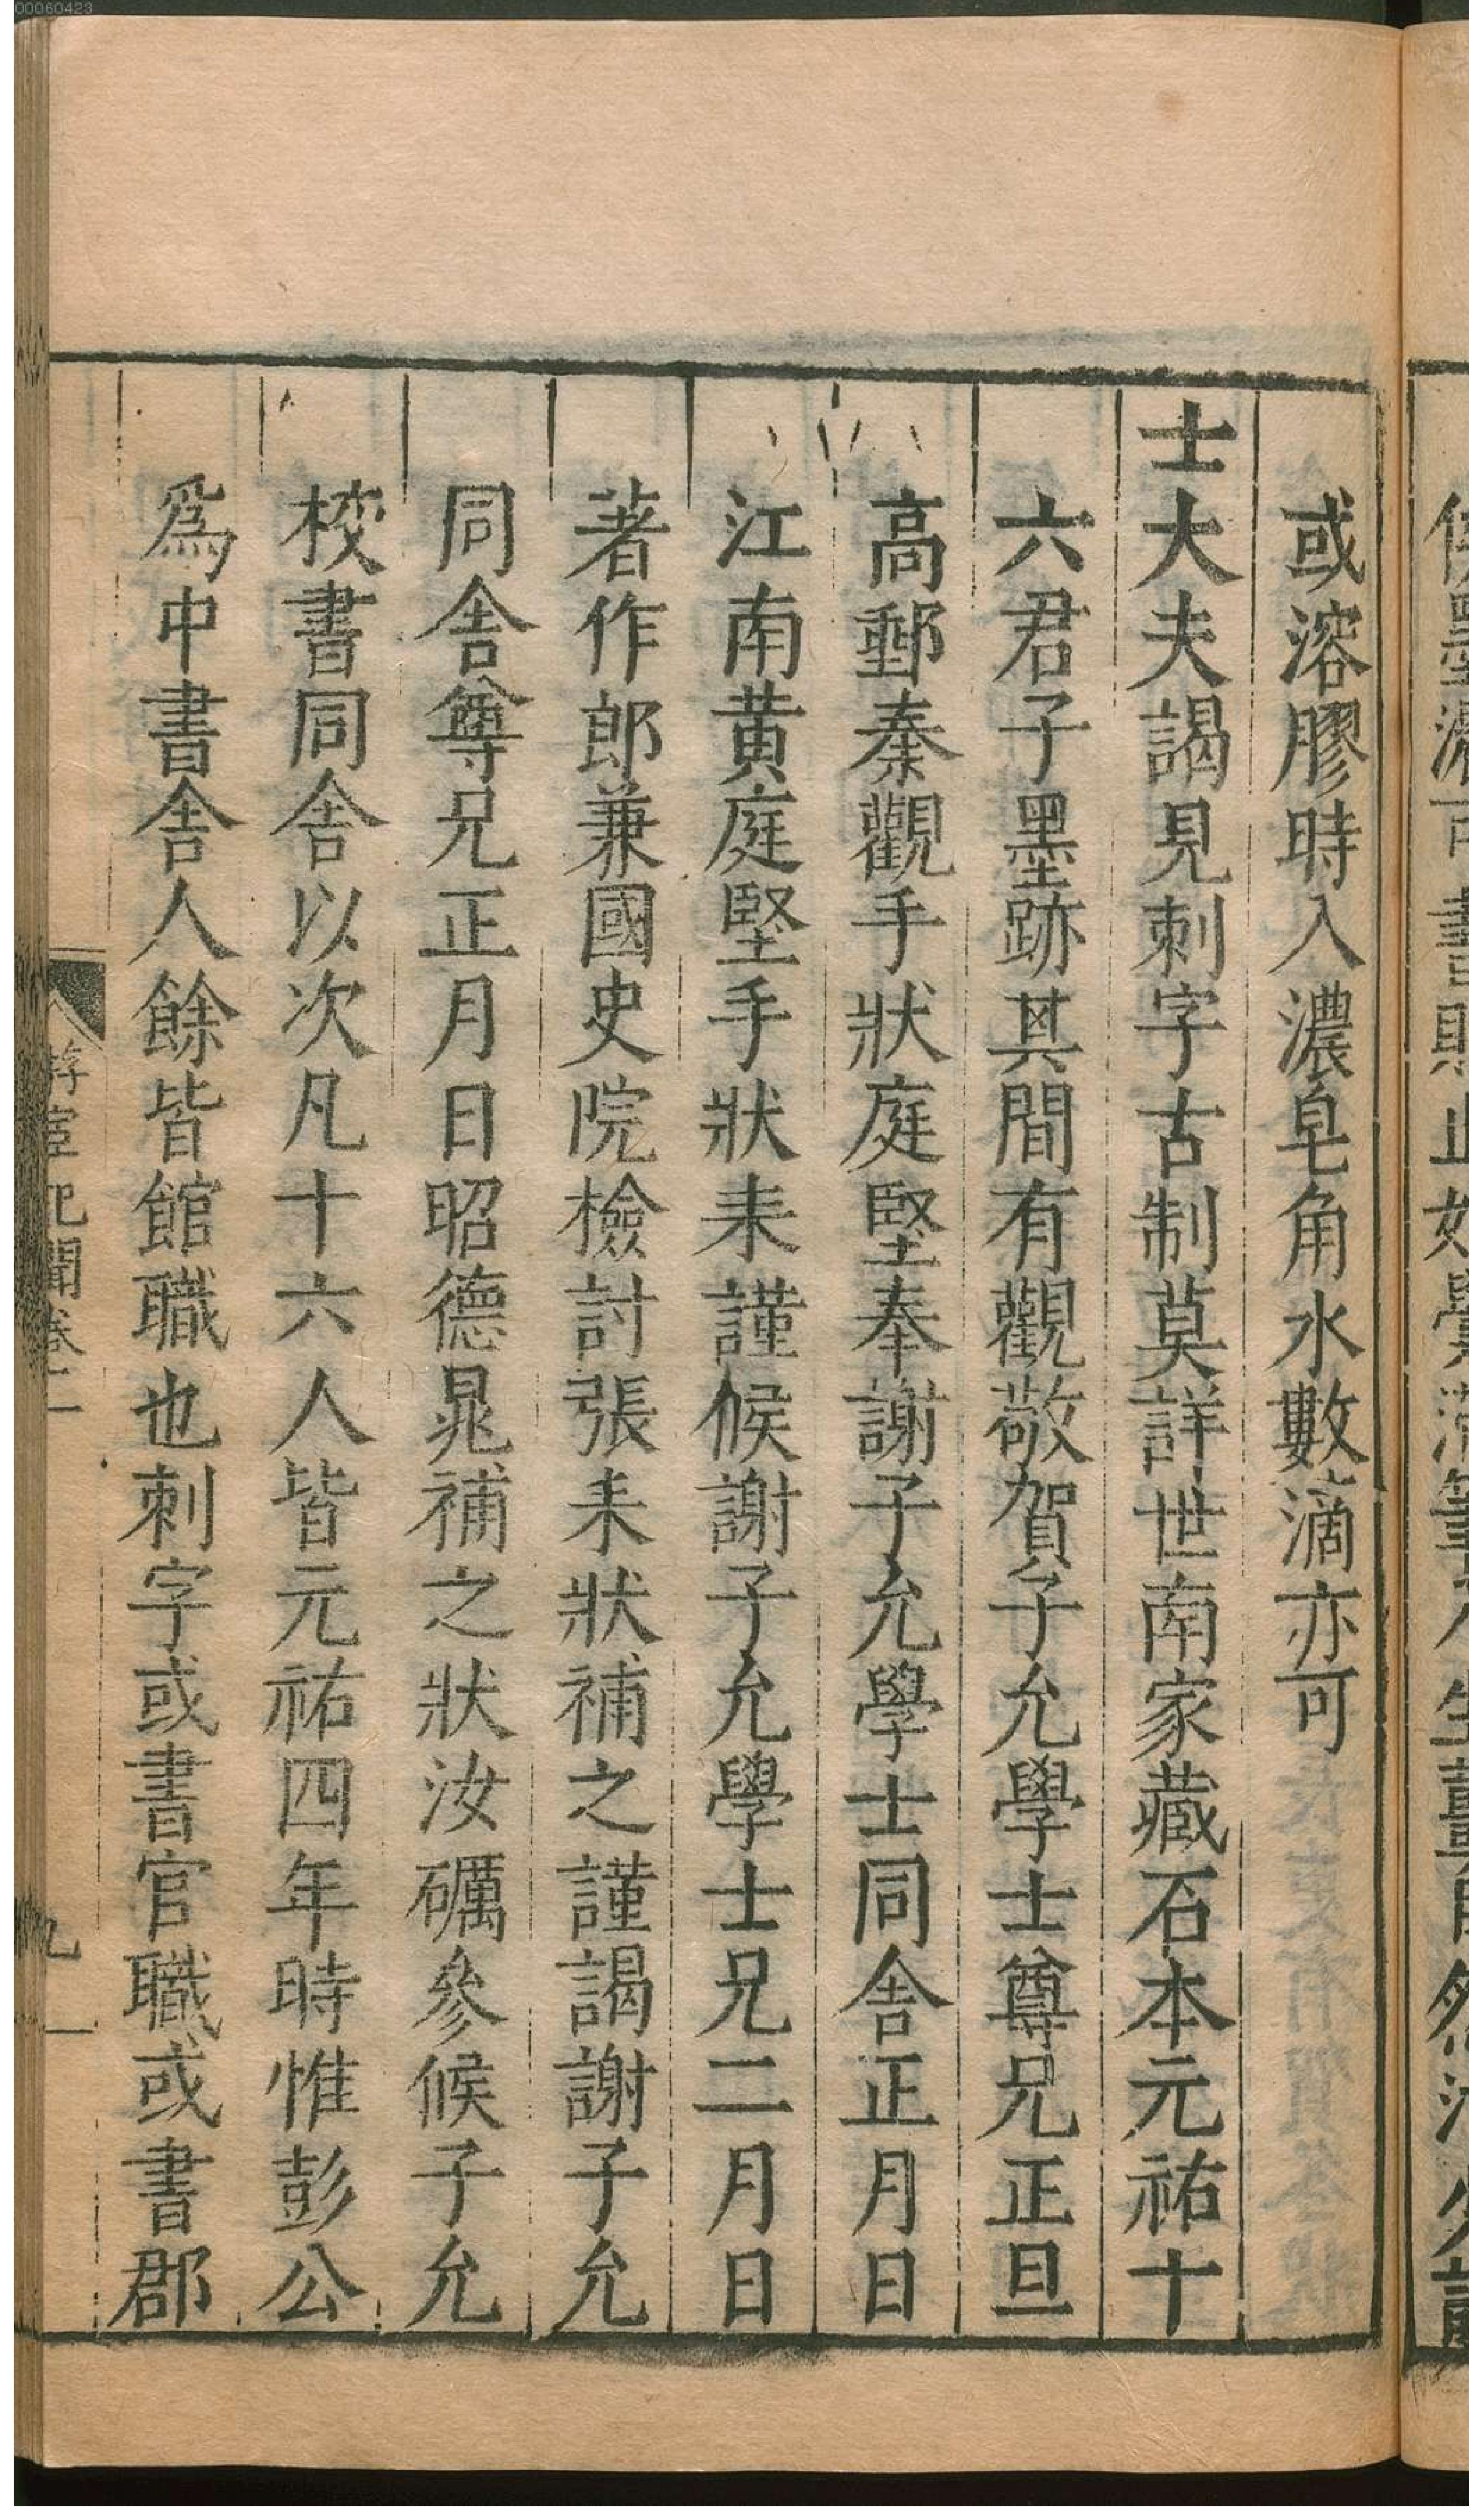 00060423
或溶膠時入濃皂角水數滴亦可
士大夫謁見刺字古制莫詳世南家藏石本元祐十
六君子墨跡其間有觀敬賀子允學士尊兄正旦
高郵秦觀手狀庭堅奉謝子允學士同舍正月日
江南黄庭堅手狀耒謹候謝子允學士兄二月日
著作郎兼國史院檢討張耒狀補之謹謁謝子允
同舍尊兄正月日昭德晁補之狀汝礪參候子允
校書同舍以次凡十六人皆元祐四年時惟彭公
爲中書舍人餘皆館職也刺字或書官職或書郡
聞卷二
九